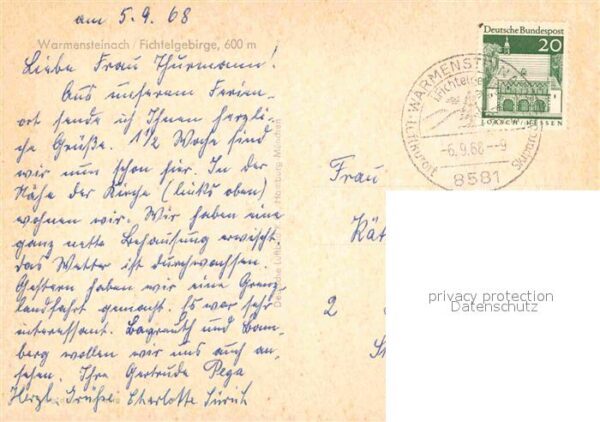 am 5.9.68
Warmensteinach / Fichtelgebirge, 600 m
Liebe Frau Thurmann!
Aus unserem Ferien-
ort sende ich Ihnen herzli-
che Grüße. 1½ Woche sind
wir nun schon hier. In der
Nähe der Kirche (links oben)
wohnen wir. Wir haben eine
ganz nette Behausung erwischt
das Wetter ist durchwachsen.
Gestern haben wir eine Grenz-
landfahrt gemacht. Es war sehr
interessant. Bayreuth und Bam-
berg wollen wir uns auch an-
sehen. Ihre Gertrude Pega
Herzl. Grüße Charlotte
Deutsche Hamburg München
Deutsche Bundespost
20
LORSCH / HESSEN
WARMENSTEIN
Luftkurort
-6.9.68--9
8581
Frau
Kät
2
privacy protection
Datenschutz